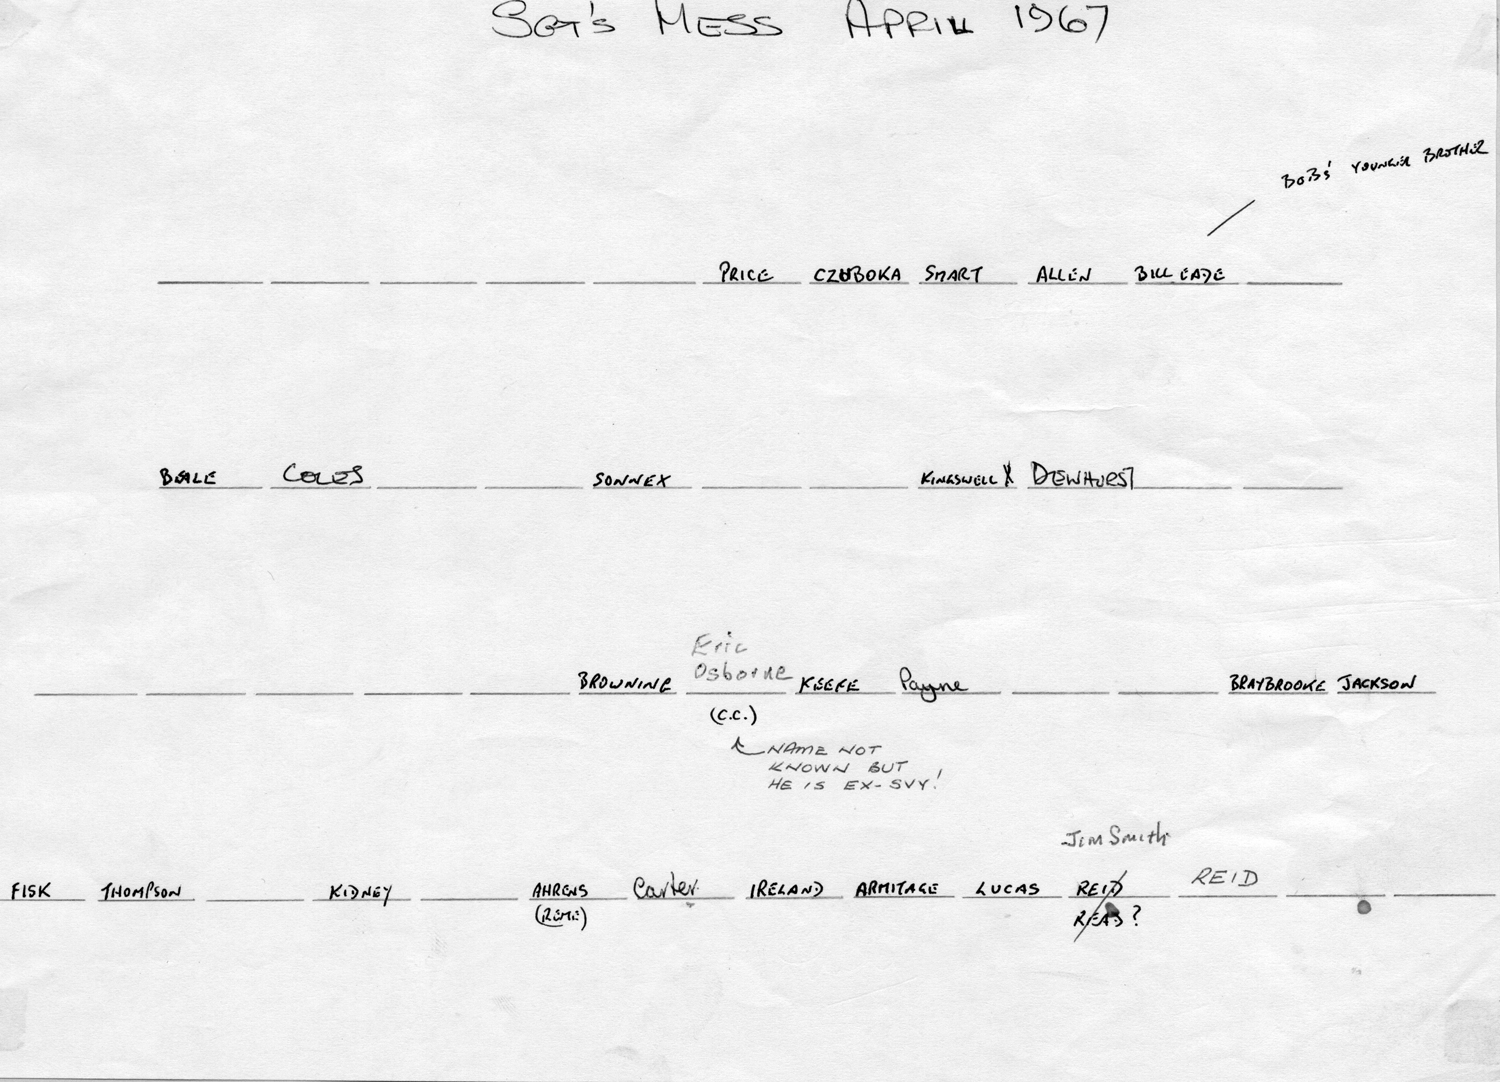 SGT'S MESS APRIL 1967
BOB'S YOUNGER BROTHER
PRICE CZUBOKA SMART ALLEN BILL EADE
BEALE COLES SONNEX KINGSWELL X DEWHURST
Eric
Osborne
BROWNING KEEFE Payne BRAYBROOKE JACKSON
(C.C.)
NAME NOT
KNOWN BUT
HE IS EX-SVY!
Jim Smith
FISK THOMPSON KIDNEY AHRENS Carter IRELAND ARMITAGE LUCAS REID REID
(REME) READ?